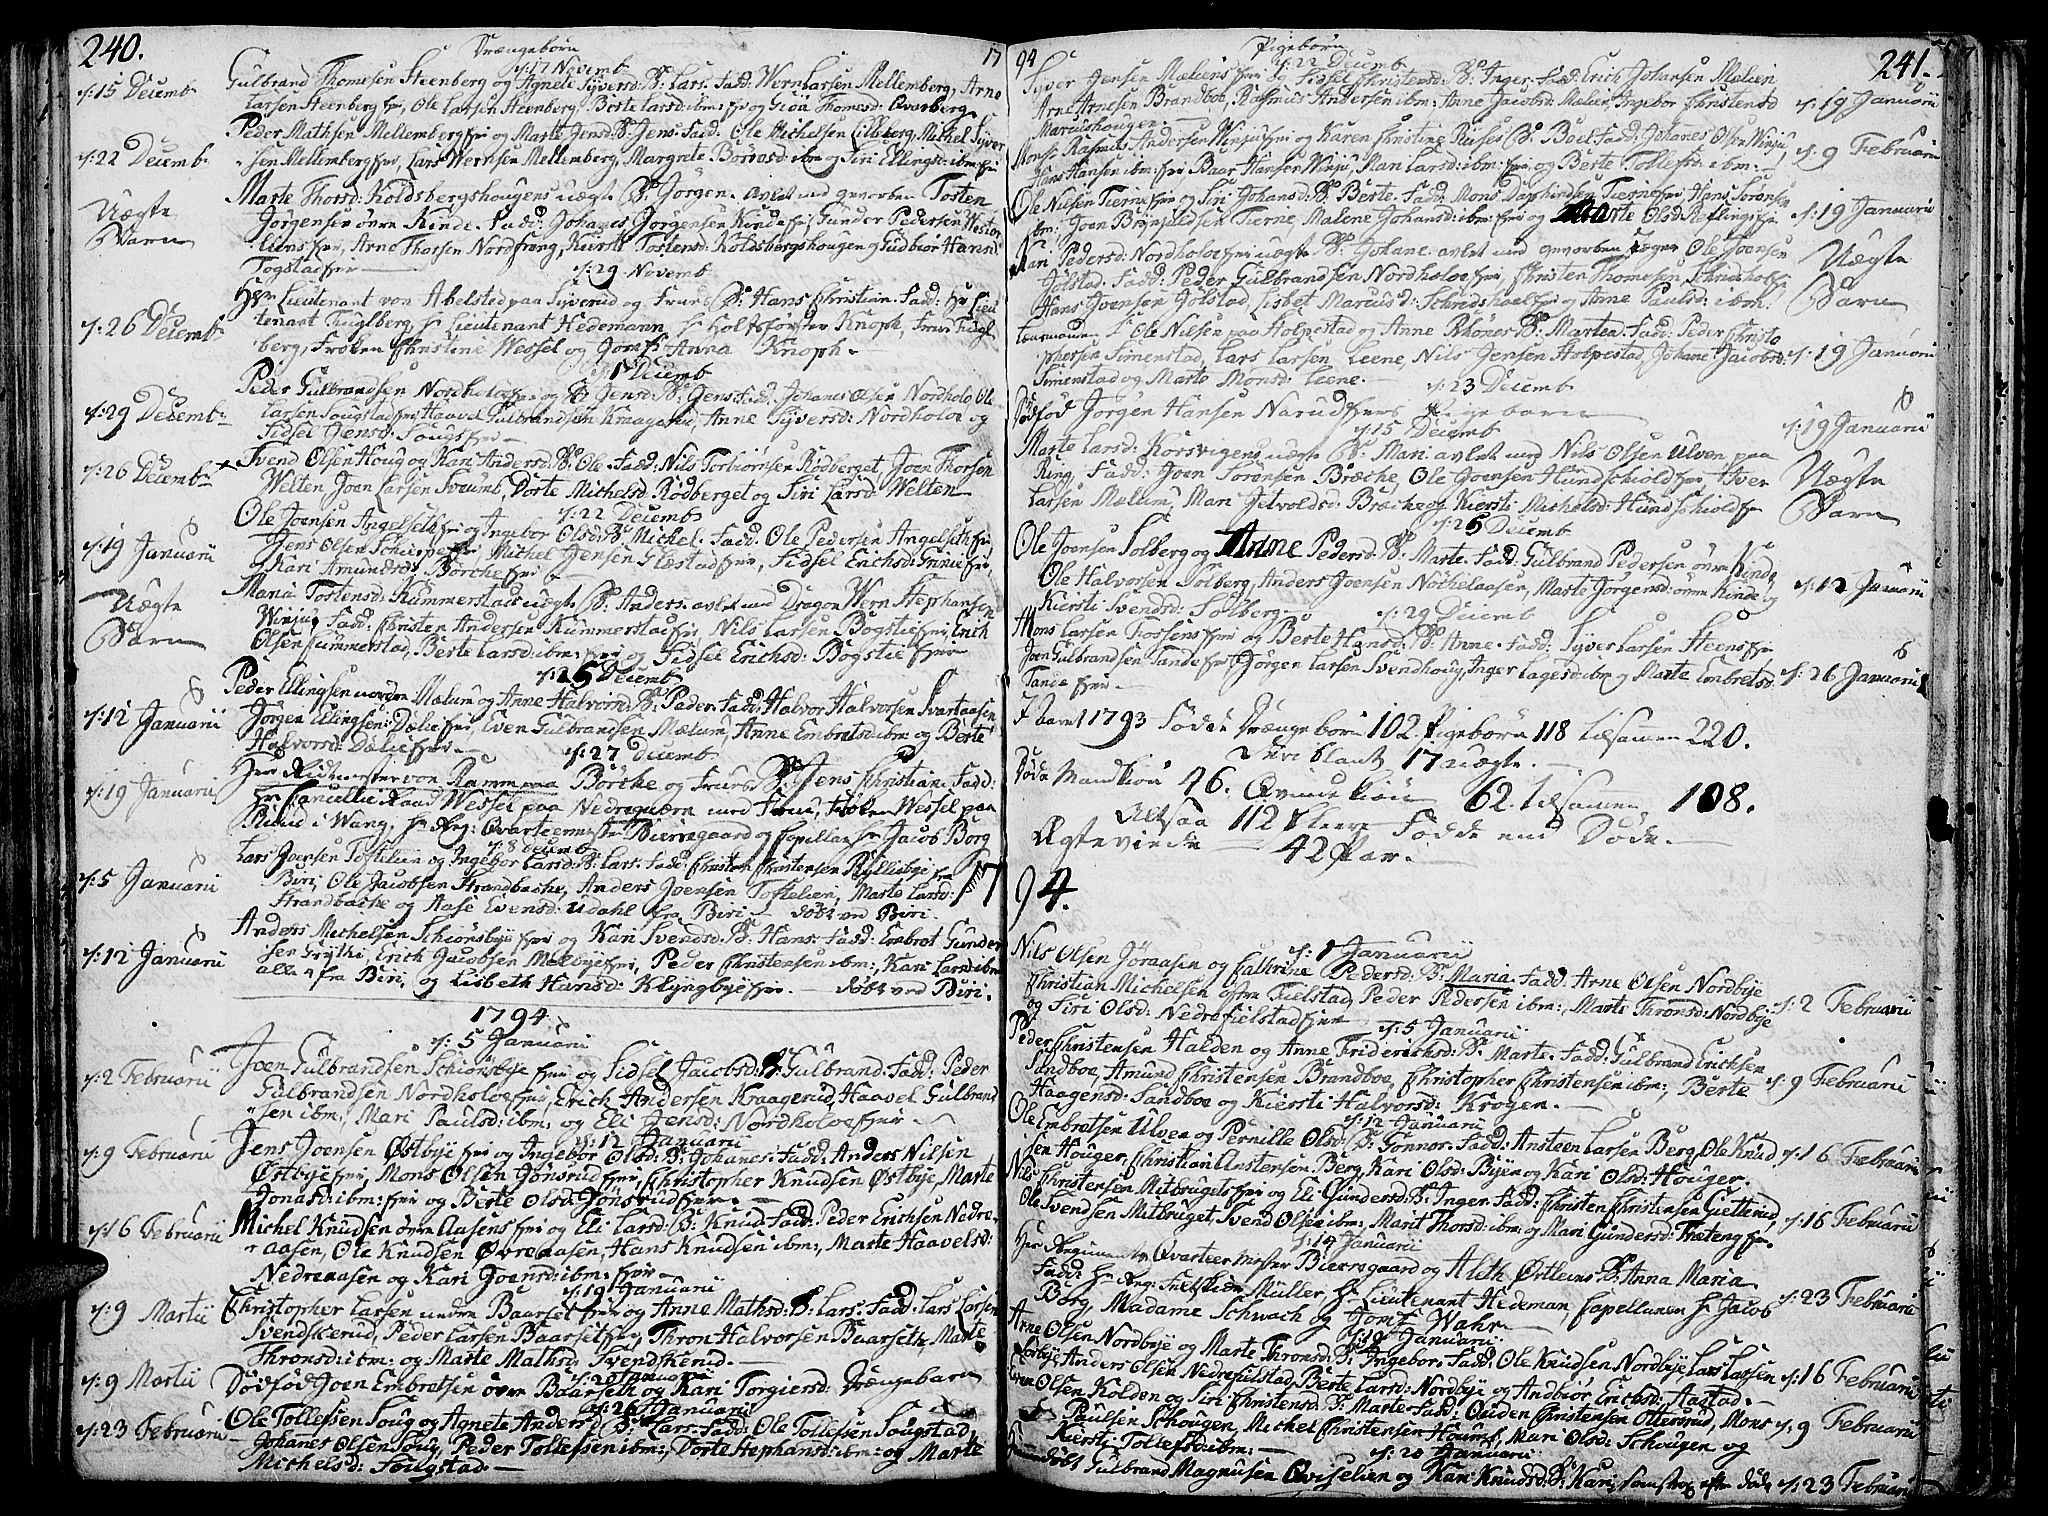 240.
Drængebørn
17
d: 17 Novemb
d:15 Decemb
Gulbrand Thomesen Steenberg og Agnete Syversd: B: Lars. Fadd: Wern Larsen Mellemberg, Arne
Larsen Steenberg, Ole Larsen Steenberg, Berte Larsd: ibm: og Thomesd: Overberg
d:22 Decemb
Peder Mathsen Mellemberg og Marte Jensd: B: Jens. Fadd: Ole Michelsen Lilleberg, Michel Syver
sen Mellemberg, Lars Wernsen Mellemberg, Margrete ibm og Siri Ellingsd: ibm
Uægte
Barn
Marte Thorsd: Koldsbergshougens uægte B: Jørgen. avlet med Tosten
Jørgensen øvre Kinde. Fadd: Johanes Jørgensen Kinde, Gunder Pedersen
Arne Thorsen Nordsrang, Kiersti Tostensd: Koldsbergshougen og Gudbiør Hansd
Togstad
d: 29 Novemb
d:26 Decemb
Hr: Lieutenant von Abelsted paa Syverud og Frues B: Hans Christian. Fadd: Hr Lieu
tenant Fuglberg, Hr Lieutenant Hedemann, Hr Holtsförster Knoph, Frue Fugl
berg, Frøken Christine Wessel og Jomf: Anna Knoph.
d: 1 Decemb
d:29 Decemb
Peder Gulbrandsen Nordholoe og Jensd: B: Jens. Fadd: Johanes Olsen Nordholo, Ole
Larsen Sougstad, Haavel Gulbrandsen Kraagerud, Anne Syversd: Nordholoe og
Sidsel Jensd: Sougs
d:26 Decemb
Svend Olsen Houg og Kari Andersd: B: Ole. Fadd: Nils Torbiørnsen Rødberget, Joen Thorsen
Welten, Joen Larsen Svaumb, Dorte Michelsd: Rødberget og Siri Larsd: Welten
d: 22 Decemb
d:19 Januarii
Ole Joensen Angelseth og Ingebor Olsd: B: Michel. Fadd: Ole Pedersen Angelseth
Jens Olsen Michel Jensen Sidsel Erichsd:
Kari Amundsd: Børche
Uægte
Barn
Maria Tostensd: Kummerstads uægte B: Anders. avlet med Dragon Wern Stephansen
Winju, Fadd: Christen Andersen Kummerstad, Nils Larsen Bogstie, Erich
Olsen Kummerstad, Berte Larsd: ibm: og Sidsel Erichsd: Bogstie
d: 25 Decemb
d:12 Januarii
Peder Ellingsen nordre Mælum og Anne Halvorsd: B: Peder. Fadd: Halvor Halvorsen Svartaasen
Jørgen Ellingsen Dælie, Even Gulbrandsen Mælum, Anne Embretsd: ibm og Berte
Halvorsd: Dælie
d: 27 Decemb
d:19 Januarii
Herr Ridtmester von Ramm paa Børche og Frues B: Jens Christian. Fadd:
Hr Cancellie Raad Wessel paa Nedreqværn med Frue, Frøken Wessel paa
i Wang, Hr Reg: Qvarteermester Bieregaard og Capellan Hr Jacob Borg
d: 8 Decemb
d:5 Januarii
Lars Joensen Toftelien og Ingebor Larsd: B: Lars. Fadd: Christen Christensen Kyllisbye
Biri, Ole Jacobsen Strandbache, Anders Joensen Toftelien, Marte Larsd:
Strandbache og Aase Evensd: Udahl fra Biri. døbt ved Biri.
d:12 Januarii
Anders Michelsen Schiønsbye og Kari Svendsd: B: Hans. Fadd: Embret Gunder
sen Grythe, Erich Jacobsen Peder Christensen ibm:, Kari Larsd: ibm
alle 4 fra Biri, og Lisbeth Hansd: Klyngbye døbt ved Biri.
1794
d: 5 Januarii
d:2 Februarii
Joen Gulbrandsen Schiønsbye og Sidsel Jacobsd: B: Gulbrand. Fadd: Peder
Gulbrandsen Nordholoe, Erich Andersen Kraagerud, Haavel Gulbrand
sen ibm:, Mari Paulsd: ibm: og Eli Jensd: Nordholoe
d: 12 Januarii
d:9 Februarii
Jens Joensen Østbye og Ingebor Olsd: B: Johanes. Fadd: Anders Nilsen
Østbye, Mons Olsen Jønsrud, Christopher Knudsen Østbye, Marte
Jonasd: ibm: og Berte Olsd: Jønsrud
d:16 Februarii
Michel Knudsen øvre Aasens og Eli Larsd: B: Knud. Fadd: Peder Erichsen Nedre
aasen, Ole Knudsen Øvreaasen, Hans Knudsen ibm:, Marte Haavelsd:
Nedreaasen og Kari Joensd: ibm:
d: 19 Januarii
d:9 Martii
Christopher Larsen nedre Baarset og Anne Mathsd: B: Lars. Fadd: Lars Larsen
Svendskerud, Peder Larsen Baarset, Thron Halvorsen Baarseth, Marte
Thronsd: ibm: og Marte Mathsd: Svendskerud.
d: 20 Januarii
d:9 Martii
Dødfød Joen Embretsen øvre Baarseth og Kari Torgiersd: Drængebarn
d: 26 Januarii
d:23 Februarii
Ole Tollefsen Soug og Agnete Andersd: B: Lars. Fadd: Ole Tollefsen Sougstad,
Johanes Olsen Soug, Peder Tollefsen ibm:, Dorte Stephansd: ibm: og Marte
Michelsd: Sougstad.
94
Pigebørn
241.
d: 22 Decemb
Syver Jensen Mæliens og Sidsel Christensd: B: Inger. Fadd: Erich Johansen Mælien
d:19 Januarii
Arne Arnesen Brandboe, Rasmus Andersen ibm: Anne Jacobsd: Mælien, Ingebor Christensd
Marcushougen.
Mons: Rasmus Andersen Winju og Karen Christine B: Boel. Fadd: Johanes Olsen Winju,
d:9 Februarii
Hans Hansen ibm: Baar Hansen Winju, Mari Larsd: ibm: og Berte Tollefsd: ibm:
Ole Nilsen Tierne og Siri Johansd: B: Berte. Fadd: Mons Dagfindsen Tierne, Hans Sørensen
ibm: Joen Brynjuldsen Tierne, Malene Johansd: ibm: og Marte Olsd:
d:19 Januarii
Kari Pedersd: Nordholoe uægte B: Johane. avlet med Ole Joensen
Uægte
Barn
Jølstad. Fadd: Peder Gulbrandsen Nordholoe, Christen Thomesen
Hans Joensen Jølstad, Lisbet Marcusd: og Anne Paulsd: ibm:
Ole Nilsen paa Stolpestad og Anne Rhones B: Marten. Fadd: Peder Christo
phersen Simenstad, Lars Larsen Leene, Nils Jensen Stolpestad, Johane Jacobsd:
d:19 Januarii
Simenstad og Marte Monsd: Leene.
d: 23 Decemb
Dødfød Jørgen Hansen Narud Pigebarn
d:19 Januarii
d: 15 Decemb
Marte Larsd: Korsvigens uægte B: Mari. avlet med Nils Olsen Ulven paa
Uægte
Barn
Ring. Fadd: Joen Sørensen Bræche, Ole Joensen Hundschiold, Iver
Larsen Mælum, Mari Jetvoldsd: Bræche og Kiersti Michelsd: Hundschiold
d: 25 Decemb
Ole Joensen Solberg og Anne Pedersd: B: Marte. Fadd: Gulbrand Pedersen øvre Kinde
Ole Halvorsen Solberg, Anders Joensen Nøchelaasen, Marte Jørgensd: øvre Kinde og
d:12 Januarii
Kiersti Svendsd: Solberg.
d: 29 Decemb
Mons Larsen Fossens og Berte Hansd: B: Anne. Fadd: Syver Larsen Steens
Joen Gulbrandsen Sande, Jørgen Larsen Svendhoug, Inger Lagesd: ibm og Marte Embretsd:
d:26 Januarii
Sande
I Aaret 1793 Fødde Drængebørn 102. Pigebørn 118 tilsamen 220.
iblant 17 uægte.
Døde Mandkiøn 46. Qvindekiøn 62 tilsamen 108.
Altsaa 112 fleere Fødde end Døde.
Ægteviede 42 Par.
1794.
d: 1 Januarii
Nils Olsen Jøraasen og Cathrine Pedersd: B: Maria. Fadd: Arne Olsen Nordbye
Christian Michelsen øfre Fielstad, Peder Pedersen ibm:, Marte Thronsd: Nordbye
d:2 Februarii
og Siri Olsd: Nedrefielstad
d: 5 Januarii
Peder Christensen Halden og Anne Friderichsd: B: Marte. Fadd: Gulbrand Erichsen
Sandboe, Amund Christensen Brandboe, Christopher Christensen ibm:, Berte
d:9 Februarii
Haagensd: Sandboe og Kiersti Halvorsd: Krogen.
d: 12 Januarii
Ole Embretsen Ulven og Pernille Olsd: B: Gonnor. Fadd: Ansteen Larsen Berg, Ole Knud
d:16 Februarii
sen Houger, Christian Anstensen Berg, Kari Olsd: Byen og Kari Olsd: Houger.
Nils Christensen Mitbrugets og Eli Gundersd: B: Inger. Fadd: Christen Christensen
Ole Svendsen Mitbruget, Svend Olsen ibm:, Marit Thorsd: ibm: og Mari Gundersd:
d:16 Februarii
d: 14 Januarii
Hr Regiments Qvarteermester Bieregaard og Aleth Ørtlems B: Anna Maria
Fadd: Hr Reg: Müller, Hr Lieutenant Hedeman, Capellanen Hr Jacob
d:23 Februarii
Borg, Madame Schwach og Jomf: Wahr
d: 19 Januarii
Arne Olsen Nordbye og Marte Thronsd: B: Ingebor. Fadd: Ole Knudsen Nordbye, Lars Larsen
ibm, Anders Olsen Nedrefielstad, Berte Larsd: Nordbye og Andbiør Erichsd: Aastad.
d:16 Februarii
Olsen Kolden og Siri Christensd: B: Marte. Fadd: Ouden Christensen Otterrud, Mons
Paulsen Schougen, Michel Christensen Houmb, Mari Olsd: Schougen og
d:9 Februarii
Kiersti Tollefsd: ibm:
d: 20 Januarii
døbt Gulbrand Magnusen Qviselien og Kari Knudsd: B: Kari, som strax efter døde
d:23 Februarii